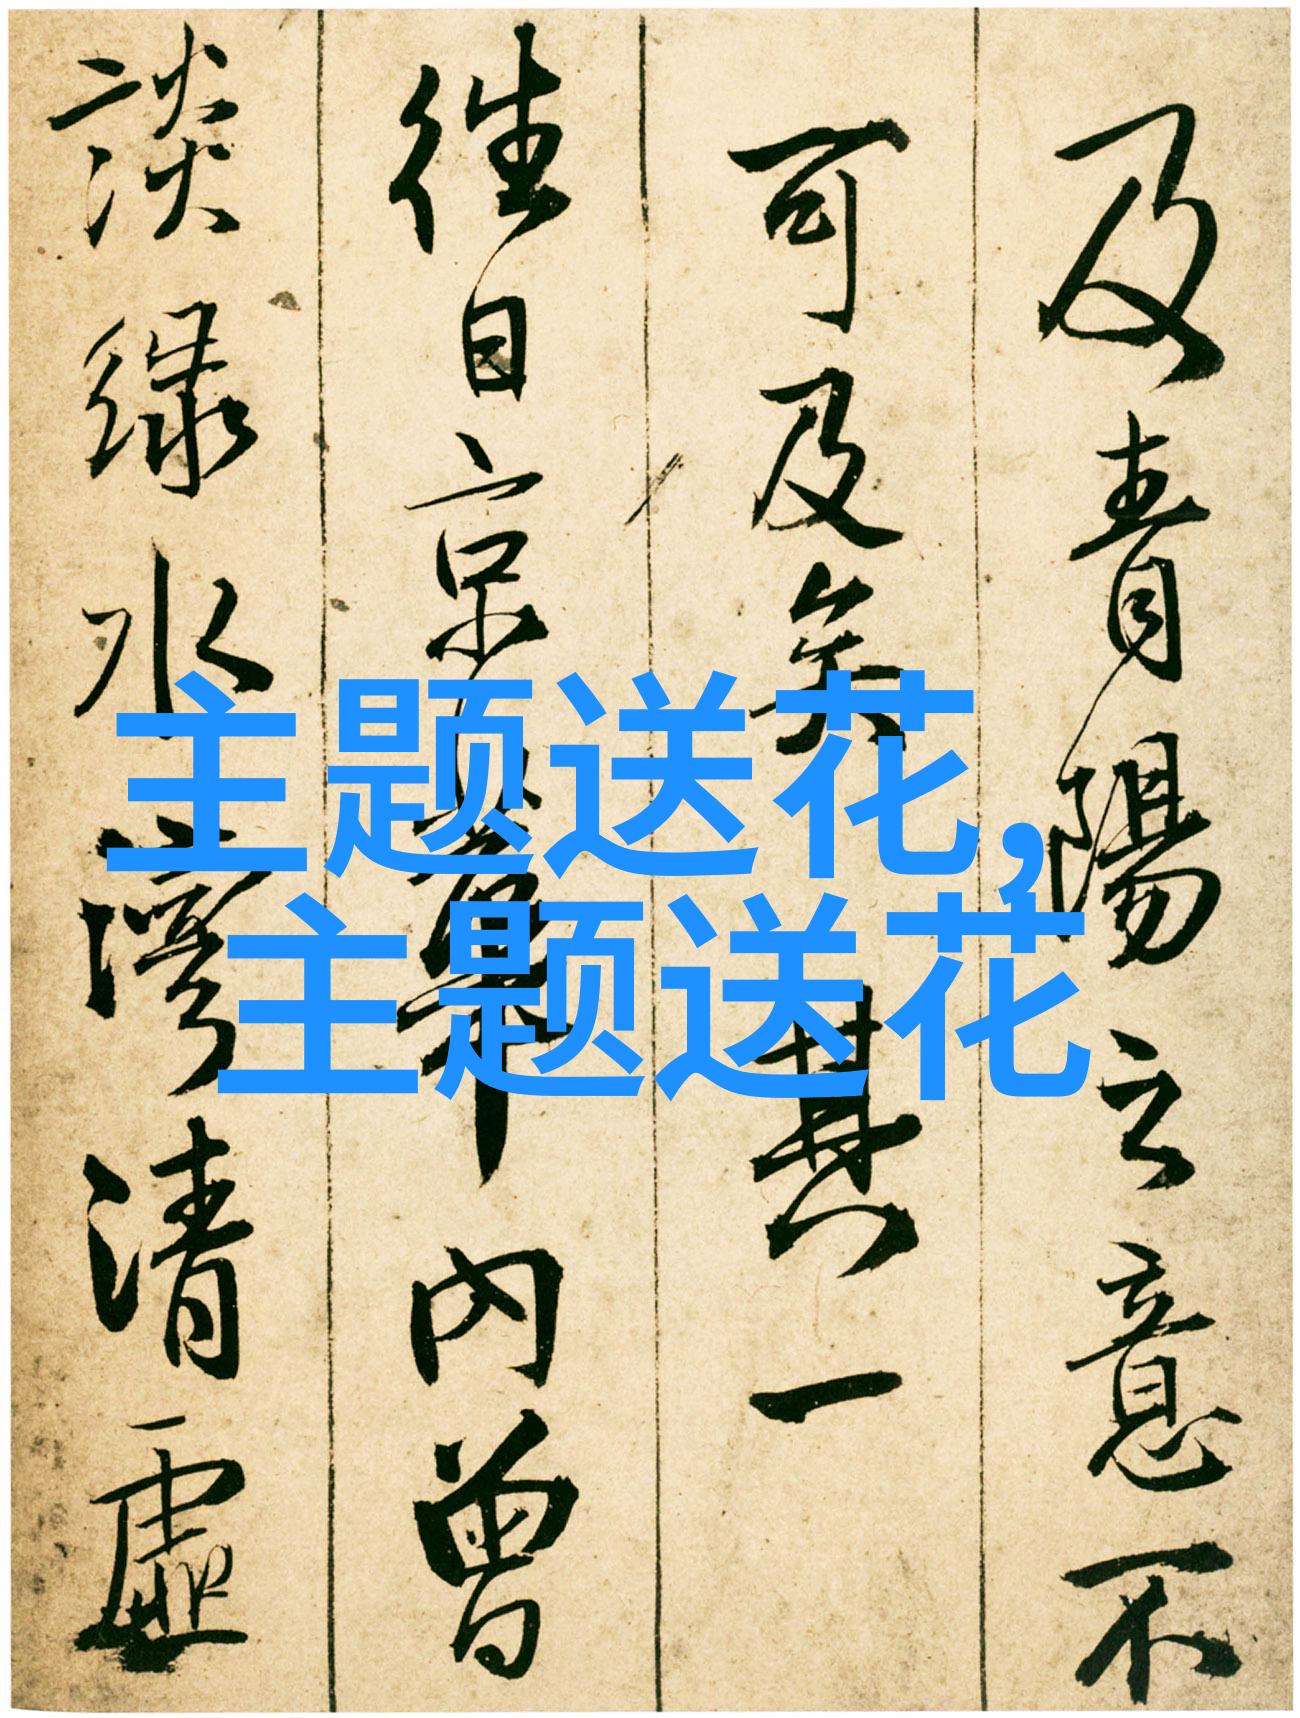 及青陽之意不
可及矣其一
徃日京華幕中內曾
談緑水灣清虛
主题送花,
主题送花